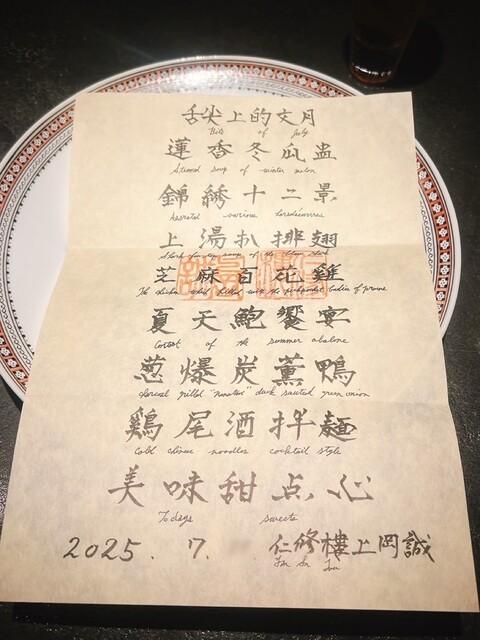 舌尖上的文月
Bits of July
蓮香冬瓜盅
Steamed soup of winter melon
錦綉十二景
Assorted various horsdoeuvres
上湯扒排翅
Shark fin
芝麻百花雞
The chicken
夏天鮑饗宴
Contest of the summer abalone
葱爆炭薫鴨
charcoal grilled duck sauted green onion
鷄尾酒拌麺
Cold chinese noodles cocktail style
美味甜点心
Todays sweets
2025. 7. 仁修樓上岡誠